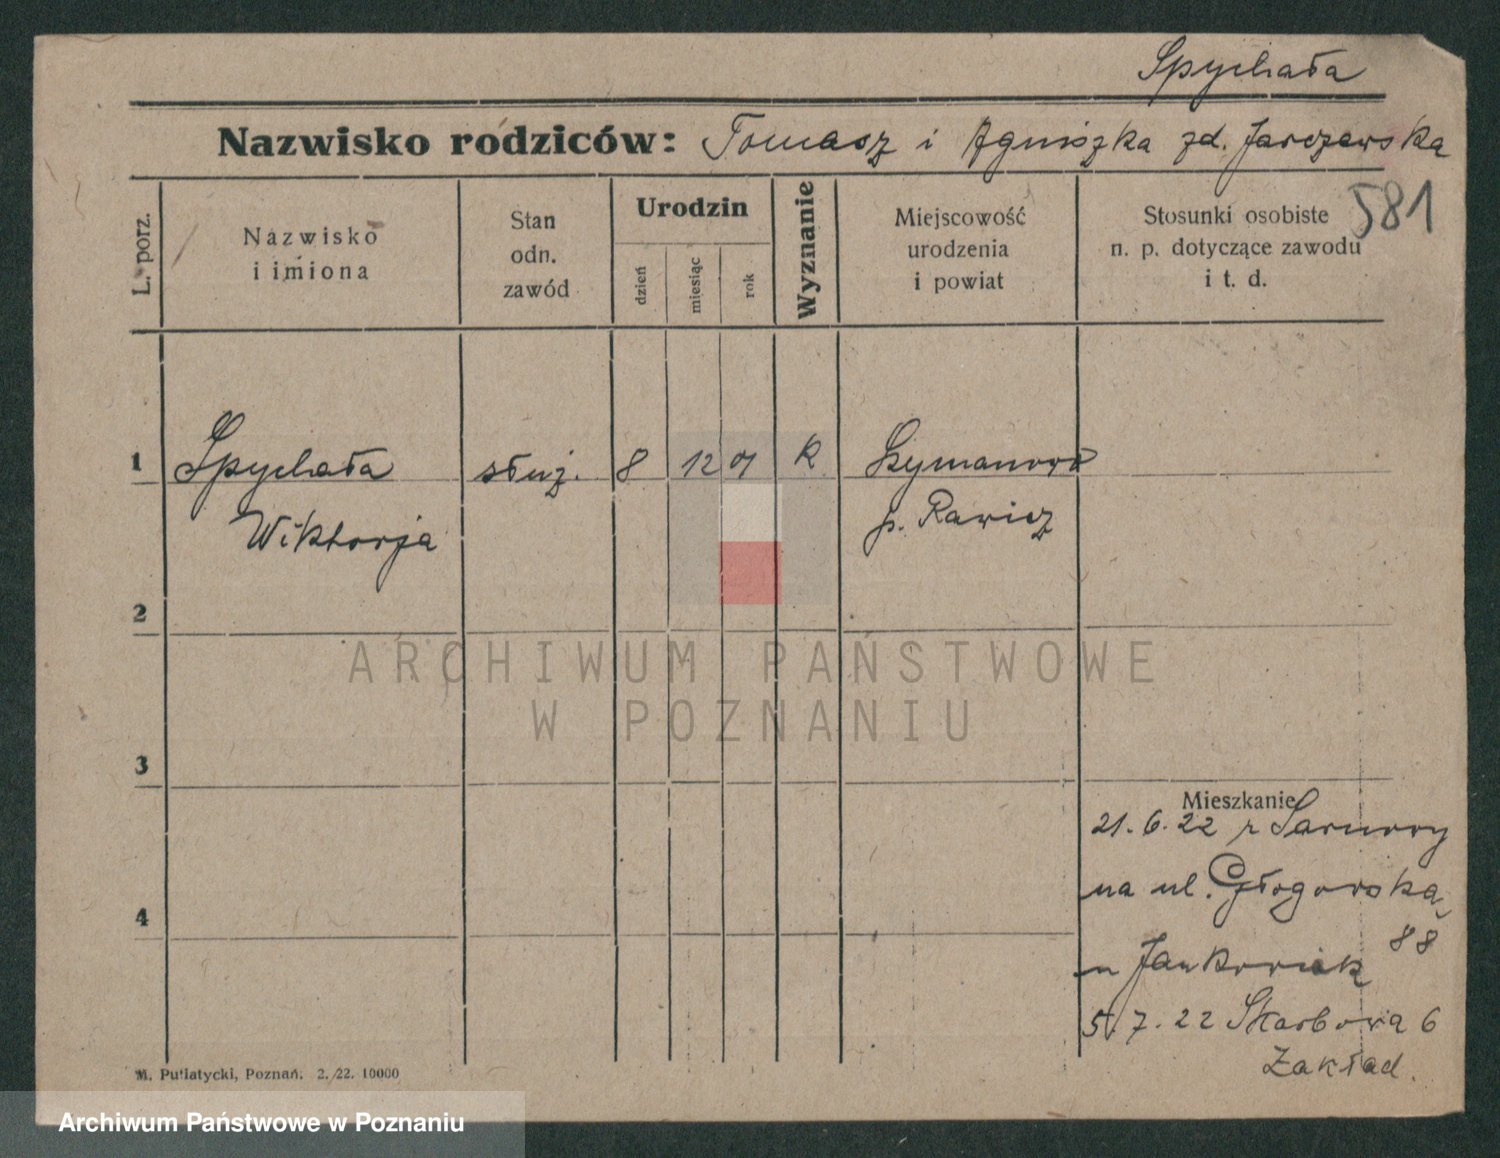 Spychała
Nazwisko rodziców: Tomasz i Agnieszka zd. Jarczewska
581
L. porz.
Nazwisko
i imiona
Stan
odn.
zawód
Urodzin
dzień
miesiąc
rok
Wyznanie
Miejscowość
urodzenia
i powiat
Stosunki osobiste
n. p. dotyczące zawodu
i t. d.
1 Spychała służ. 8 12 01 K Szymanowo
Wiktorja p. Rawicz
2
ARCHIWUM PAŃSTWOWE
W POZNANIU
3
Mieszkanie
21.6.22 z Sarnowy
na ul. Głogowską
88
4
u Jankowiak
5.7.22 Skarbowa 6
Zakład.
M. Putiatycki, Poznań. 2. 22. 10000
Archiwum Państwowe w Poznaniu